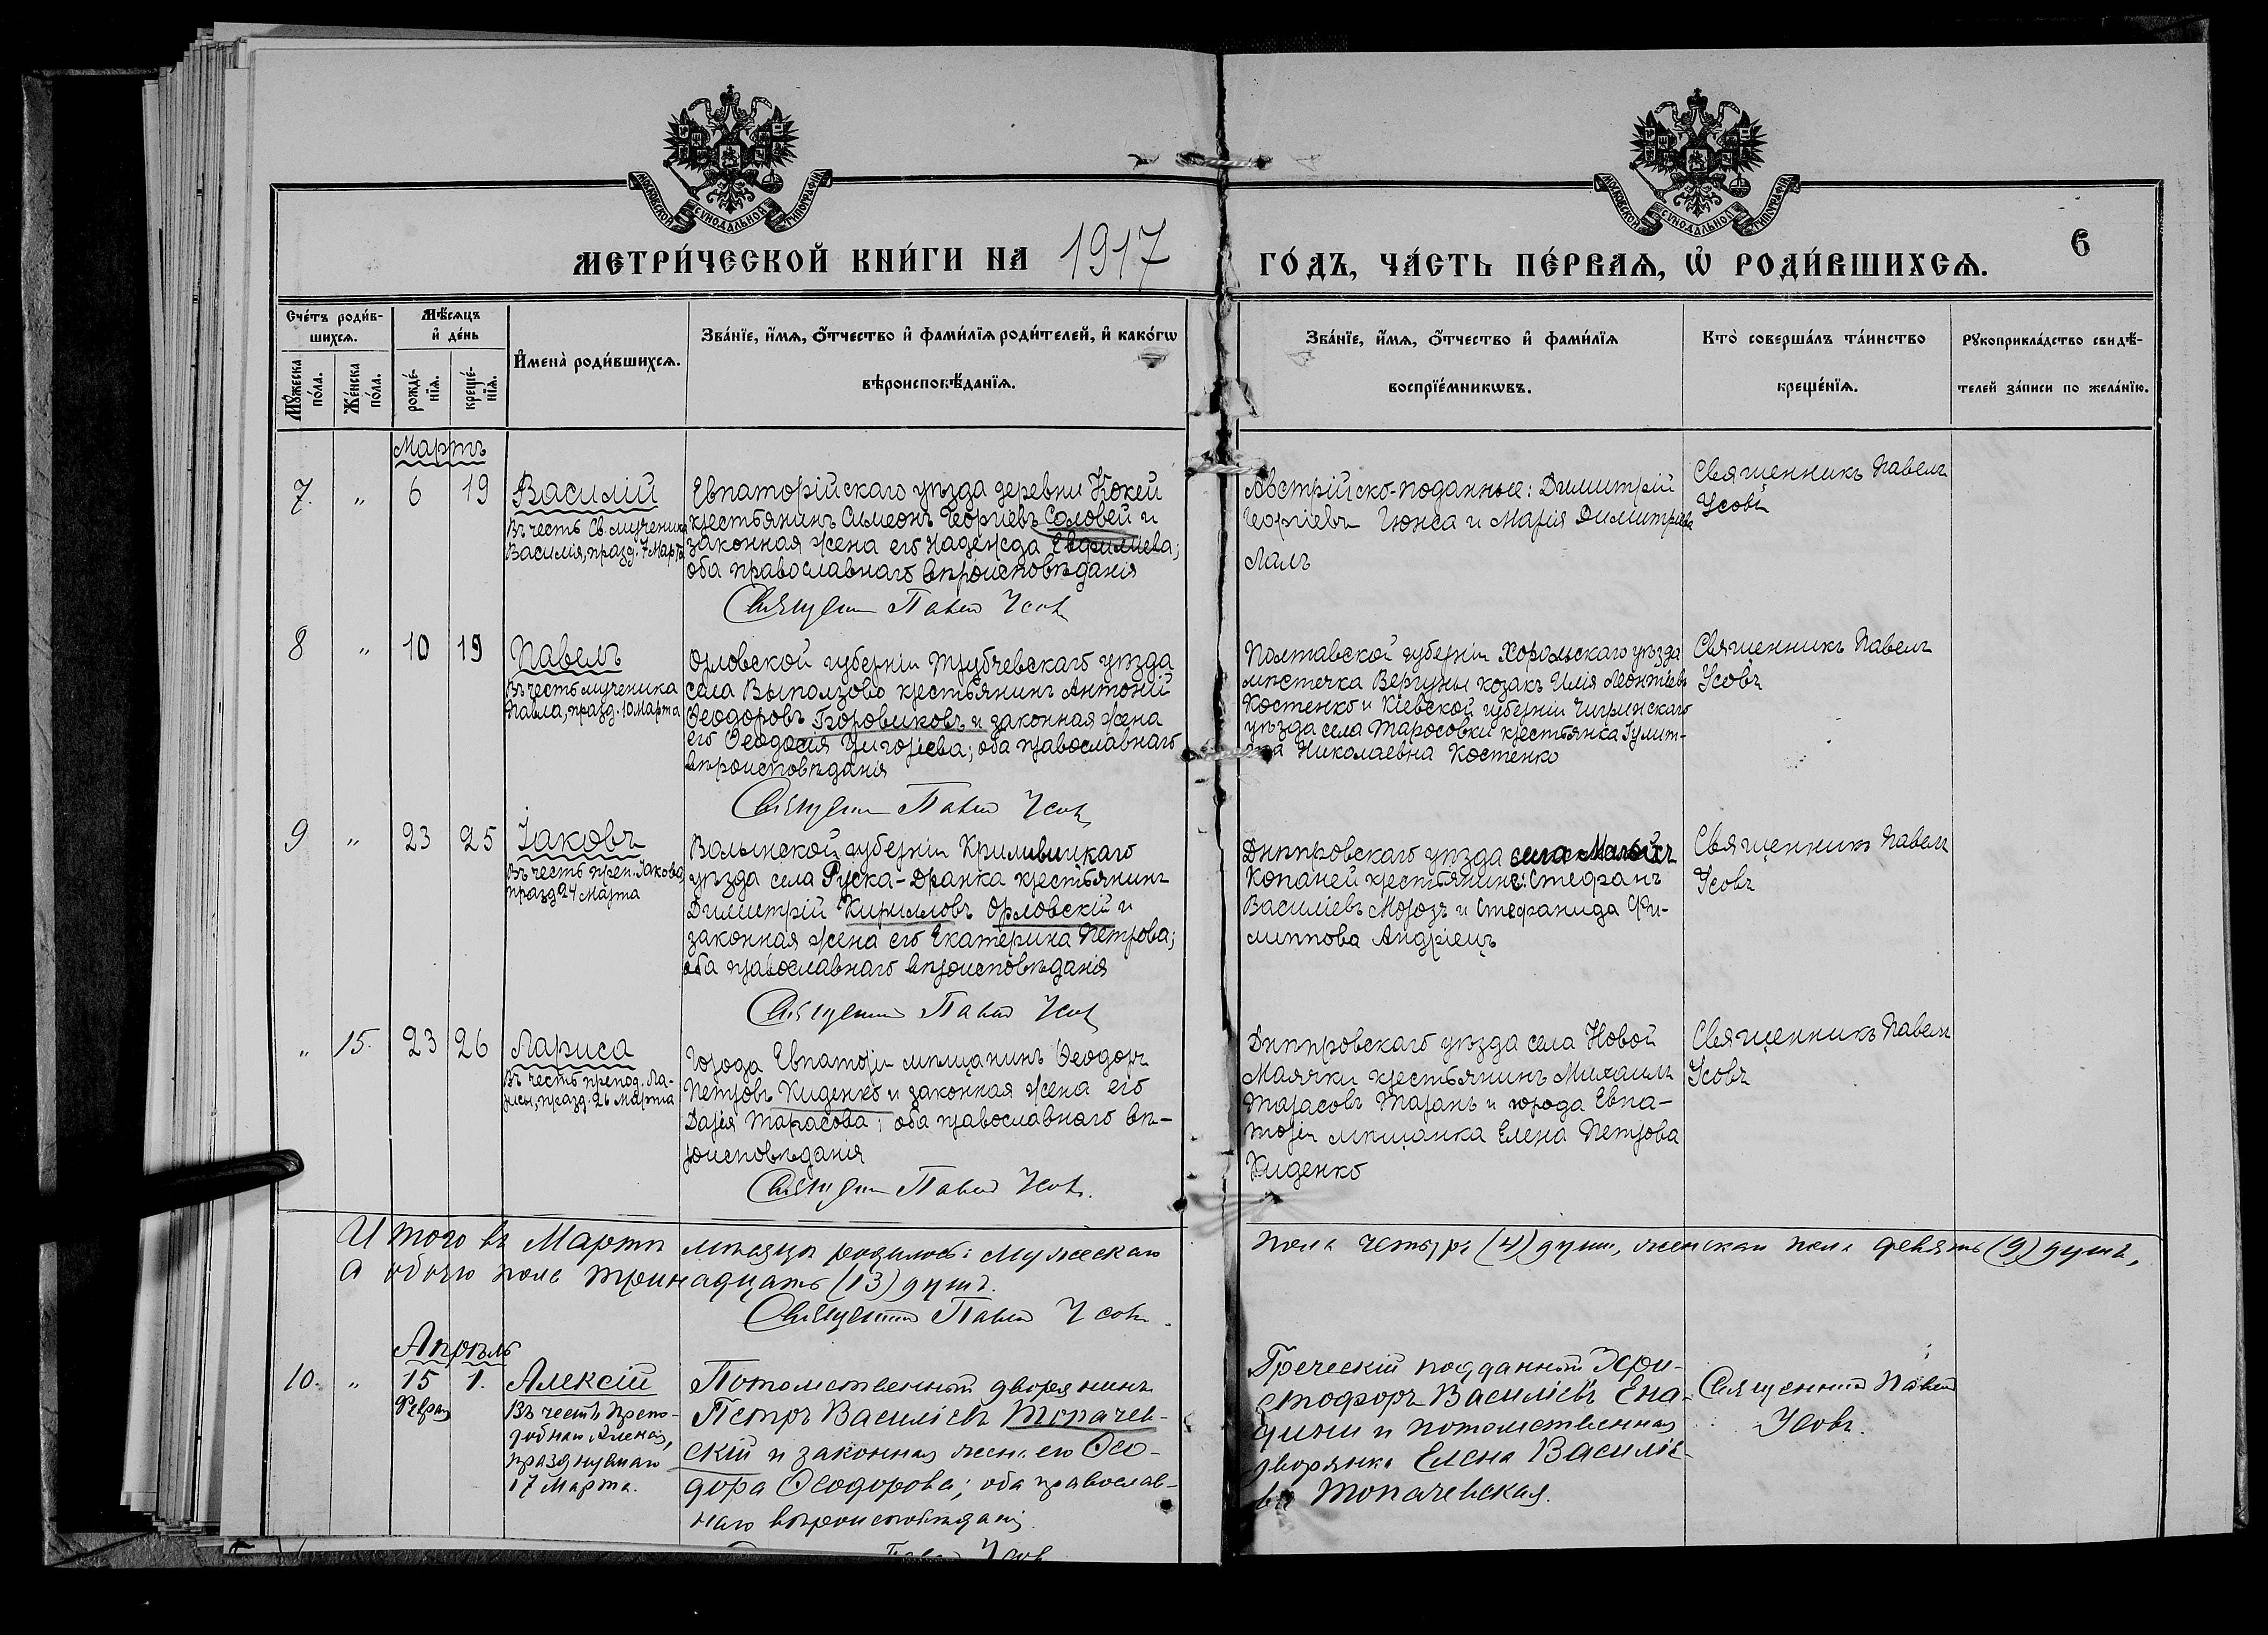 МОСКОВСКОЙ СѴНОДАЛЬНОЙ ТИПОГРАФІИ
МОСКОВСКОЙ СѴНОДАЛЬНОЙ ТИПОГРАФІИ
МЕТРИ́ЧЕСКОЙ КНИ́ГИ НА 1917 ГО́ДЪ, ЧА́СТЬ ПЕ́РВАЯ, Ѡ҆ РОДИ́ВШИХСЯ.
6
Сче́тъ роди́в-
шихся.
Мꙋ́жеска
по́ла.
Же́нска
по́ла.
Мѣ́сяцъ
и҆ де́нь
рожде́-
нїя.
креще́-
нїя.
И҆мена̀ роди́вшихся.
Зва́нїе, и҆́мя, ѻ҆́тчество и҆ фами́лїя роди́телей, и҆ како́гѡ
вѣроисповѣ́данїя.
Зва́нїе, и҆́мя, ѻ҆́тчество и҆ фами́лїя
воспрїе́мникѡвъ.
Кто̀ соверша́лъ та́инство
креще́нїя.
Рꙋкоприкла́дство свидѣ́-
телей за́писи по жела́нїю.
Мартъ
7. " 6 19
Василій
Въ честь Св. мученика
Василія, празд. 7 Марта
Евпаторійскаго уѣзда деревни Кокей
крестьянинъ Симеонъ Георгіевъ Соловей и
законная жена его Надежда Евфиміева;
оба православнаго вѣроисповѣданія
Священникъ Павелъ Усовъ
Австрійско-поданные: Димитрій
Георгіевъ Гюнса и Марія Димитріева
Лалъ
Священникъ Павелъ
Усовъ
8 " 10 19
Павелъ
Въ честь мученика
Павла, празд. 10 Марта
Орловской губерніи Трубчевскаго уѣзда
села Выползово крестьянинъ Антоній
Ѳеодоровъ Боровиковъ и законная жена
его Ѳеодосія Григорьева; оба православнаго
вѣроисповѣданія
Священникъ Павелъ Усовъ
Полтавской губерніи Хорольскаго уѣзда
мѣстечка Вергуны козакъ Илія Леонтіевъ
Костенко и Кіевской губерніи Чигринскаго
уѣзда села Таросовки крестьянка Іулит-
та Николаевна Костенко
Священникъ Павелъ
Усовъ
9 " 23 25
Іаковъ
Въ честь преп. Іакова,
празд 24 Марта
Волынской губерніи
уѣзда села Руска-Дранка крестьянинъ
Димитрій Кирилловъ Орловскій и
законная жена его Екатерина Петрова;
оба православнаго вѣроисповѣданія
Священникъ Павелъ Усовъ
Днѣпровскаго уѣзда села Малыхъ
Копаней крестьянинъ: Стефанъ
Василіевъ Морозъ и Стефанида Фи-
липпова Андріецъ
Священникъ Павелъ
Усовъ
" 15. 23 26
Лариса
Въ честь препод. Ла-
рисы, празд. 26 Марта
Города Евпаторіи мѣщанинъ Ѳеодоръ
Петровъ Киденко и законная жена его
Дарія Тарасова; оба православнаго вѣ-
роисповѣданія
Священникъ Павелъ Усовъ.
Днѣпровскаго уѣзда села Новой
Маячки крестьянинъ Михаилъ
Тарасовъ Таранъ и города Евпа-
торіи мѣщанка Елена Петрова
Киденко
Священникъ Павелъ
Усовъ
Итого въ Мартѣ мѣсяцѣ родилось: мужескаго пола четыре (4) души, женскаго пола девять (9) душъ,
а обоего пола тринадцать (13) душъ.
Священникъ Павелъ Усовъ.
Апрѣль
10. " 15 1.
Февра
Алексій
Въ честь Препо-
добнаго Алексія,
празднуемаго
17 Марта.
Потомственный дворянинъ
Петръ Василіевъ Топачев-
скій и законная жена его Ѳео-
дора Ѳеодорова; оба православ-
наго вѣроисповѣданія.
Павелъ Усовъ
Греческій подданный
Василіевъ
и потомственная
дворянка Елена Василіе-
ва Топачевская.
Священникъ Павелъ
Усовъ.